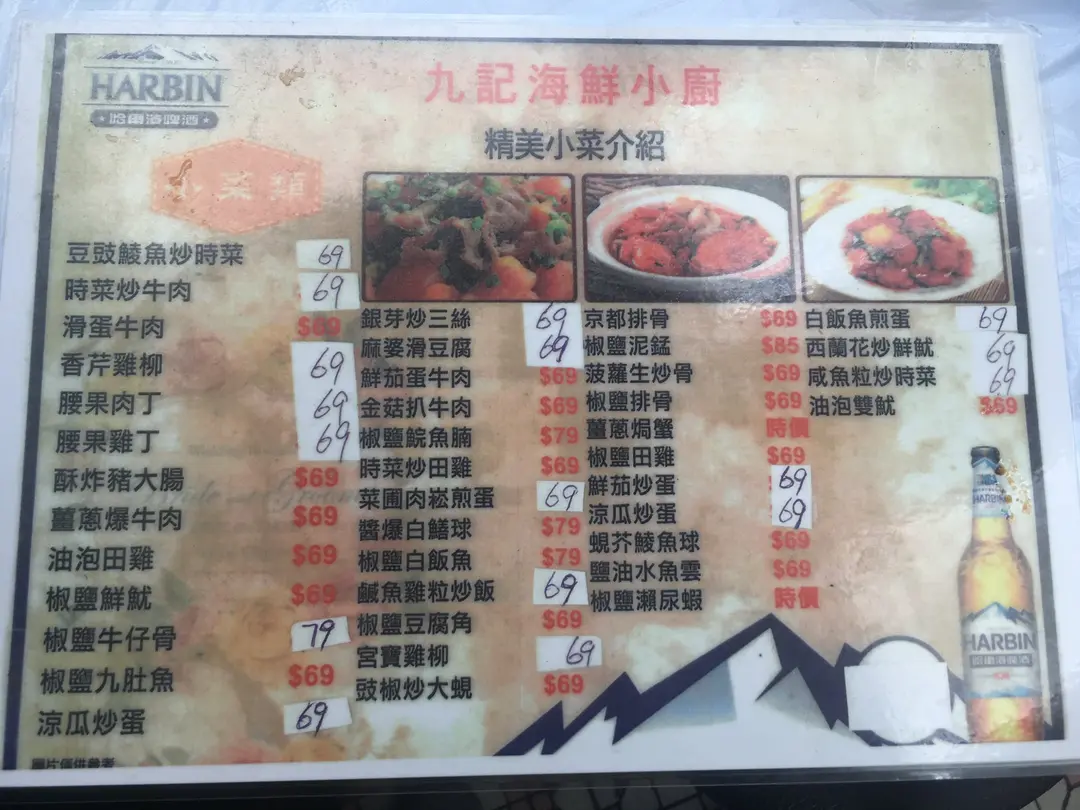 HARBIN
哈爾濱啤酒
九記海鮮小廚
精美小菜介紹
小菜類
豆豉鯪魚炒時菜 69
時菜炒牛肉 69
滑蛋牛肉 $69
香芹雞柳 69
腰果肉丁 69
腰果雞丁 69
酥炸豬大腸 $69
薑蔥爆牛肉 $69
油泡田雞 $69
椒鹽鮮魷 $69
椒鹽牛仔骨 79
椒鹽九肚魚 $69
涼瓜炒蛋 69
圖片僅供參考
銀芽炒三絲 69
麻婆滑豆腐 69
鮮茄蛋牛肉 $69
金菇扒牛肉 $69
椒鹽鯇魚腩 $79
時菜炒田雞 $69
菜圃肉崧煎蛋 69
醬爆白鱔球 $79
椒鹽白飯魚 $79
鹹魚雞粒炒飯 69
椒鹽豆腐角 $69
宮寶雞柳 69
豉椒炒大蜆 $69
京都排骨 $69
椒鹽泥鯭 $85
菠蘿生炒骨 $69
椒鹽排骨 $69
薑蔥焗蟹 時價
椒鹽田雞 $69
鮮茄炒蛋 69
涼瓜炒蛋 69
蜆芥鯪魚球 $69
鹽油水魚雲 $69
椒鹽瀨尿蝦 時價
白飯魚煎蛋 69
西蘭花炒鮮魷 69
咸魚粒炒時菜 69
油泡雙魷 $69
HARBIN
HARBIN
哈爾濱啤酒